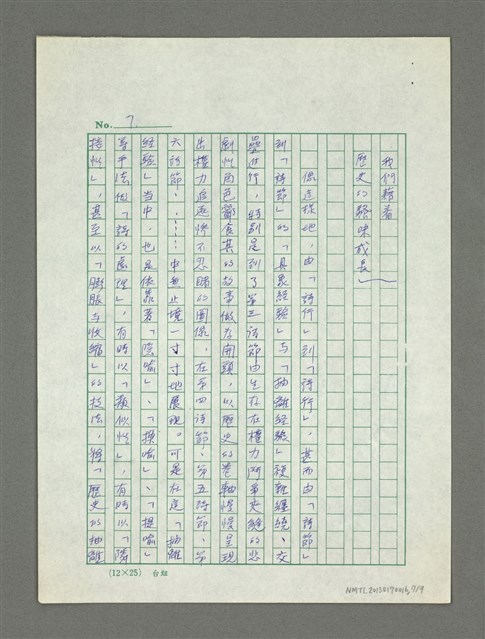 No. 7.
我們藉着
歷史的發味成長」
像這樣地,由「詩行」到「詩行」,甚而由「詩節」
到「詩節」的「具象經驗」與「抽離經驗」複雜纏繞、交
疊進行,特別是到了第三詩節由生在在權力鬥爭交繪的悲
劇性角色鄒食其的故事做為開頭,以歷史的卷軸慢慢呈現
出權力追逐慘不忍睹的圖像,在第四詩節、第五詩節、第
六詩節……中無止境一寸寸地展現。可是在是「抽離
經驗」當中,也是依靠著「隱喻」、「換喻」、「提喻」
等手法他「詩的原理」,有時以「類似性」,有時以「隣
接性」,甚至以「膨脹與收縮」的技法,將「歷史的抽離
(12×25) 台組
NMTL20150170016, 7/9